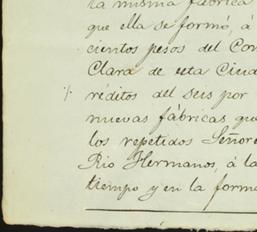 la misma fábrica
que ella se formó, á
cientos pesos del Con
Clara de esta Ciud
réditos del seis por
nuevas fábricas que
los repetidos Señore
Rio Hermanos, á la
tiempo y en la forma